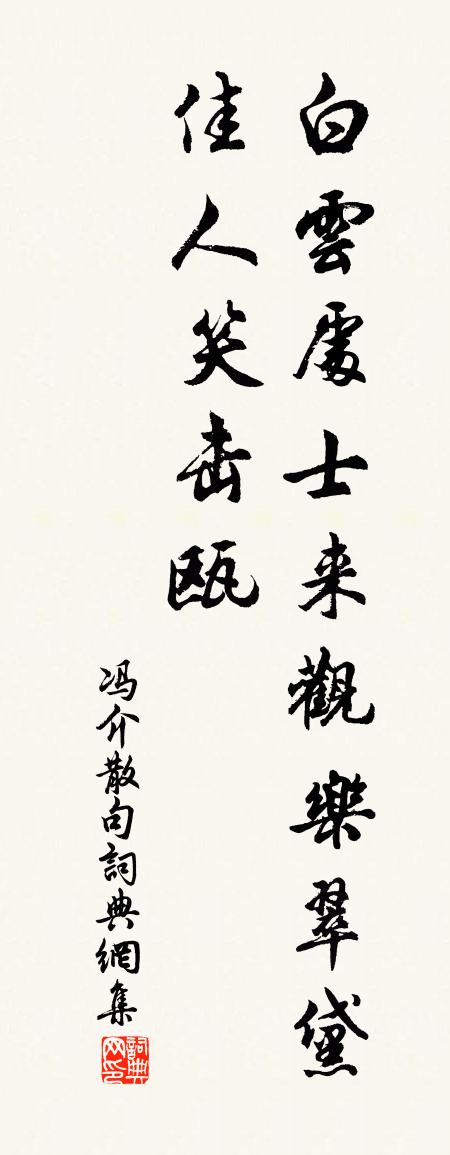 白雲處士来觀樂翠黛
佳人笑击瓯
冯介散句詞典網集
詞典网印